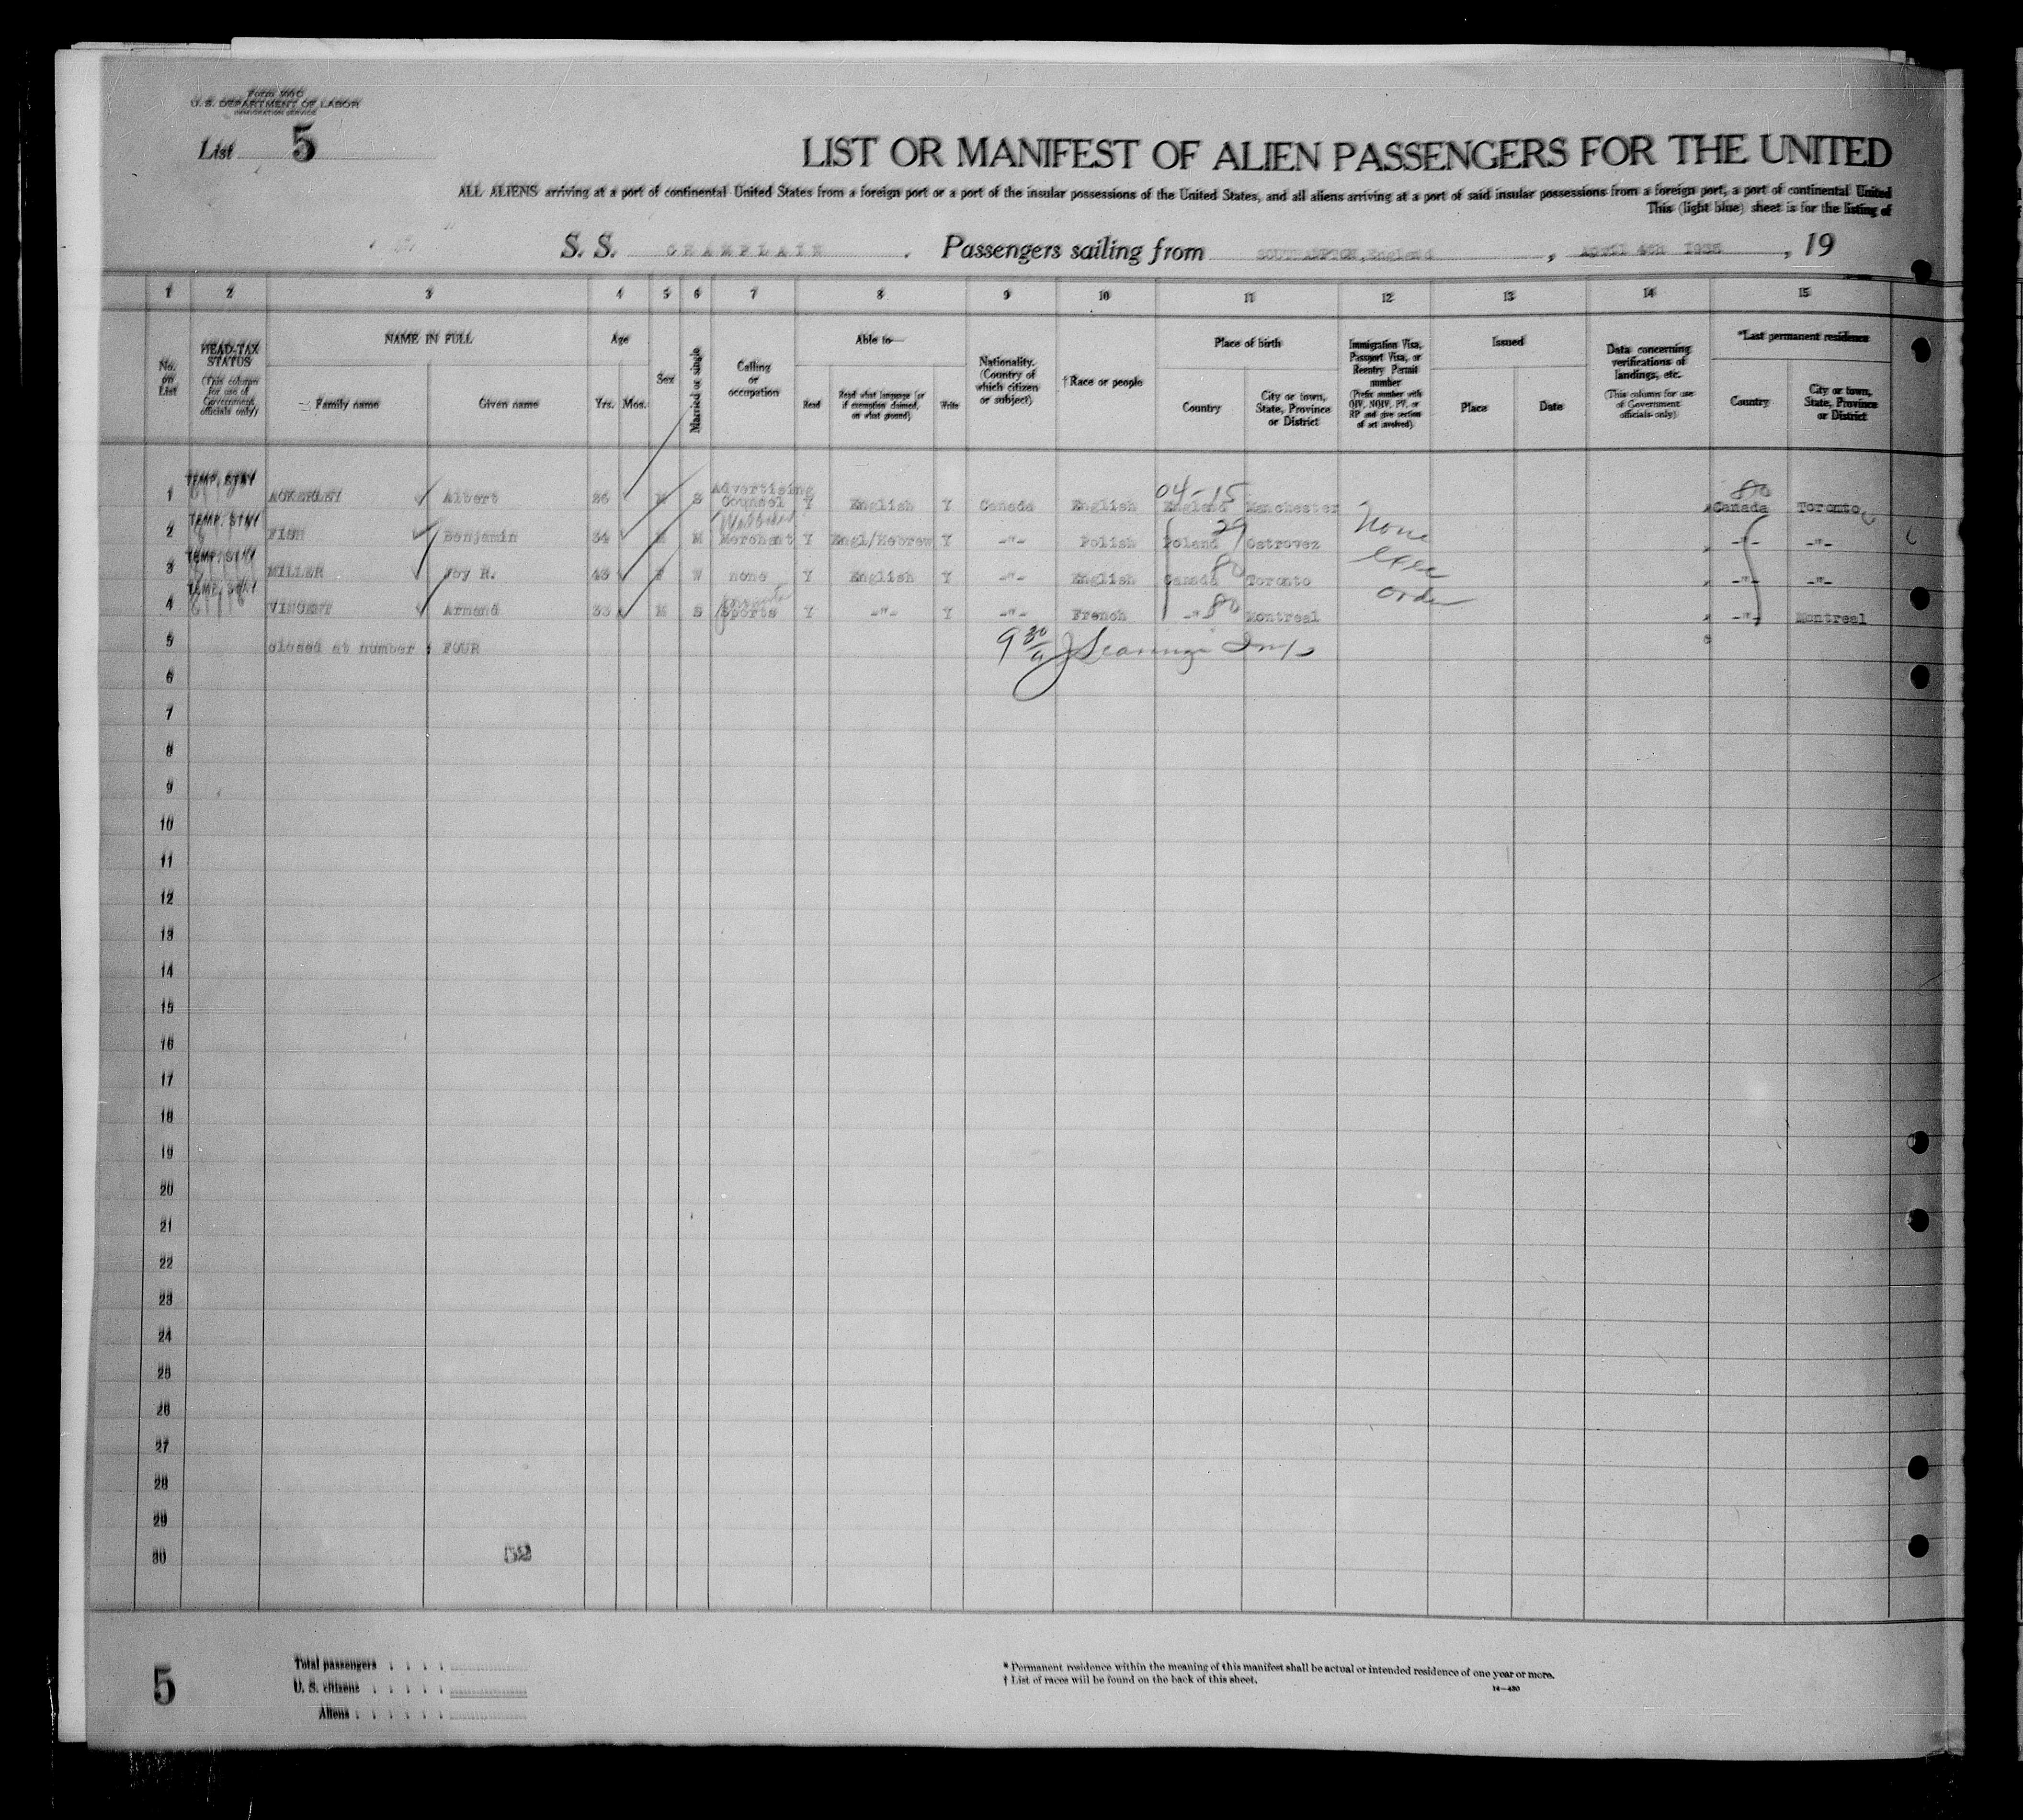 Form 500 C
U. S. DEPARTMENT OF LABOR
IMMIGRATION SERVICE
List 5
LIST OR MANIFEST OF ALIEN PASSENGERS FOR THE UNITED
ALL ALIENS arriving at a port of continental United States from a foreign port or a port of the insular possessions of the United States, and all aliens arriving at a port of said insular possessions from a foreign port, a port of continental United
This (light blue) sheet is for the listing of
S. S. CHAMPLAIN , Passengers sailing from SOUTHAMPTON, England , April 4th 1935 , 19
1 2 3 4 5 6 7 8 9 10 11 12 13 14 15
No. on List
HEAD-TAX STATUS
(This column for use of Government officials only)
NAME IN FULL
Family name Given name
Age
Yrs. Mos.
Sex
Married or single
Calling or occupation
Able to—
Read
Read what language (or if exemption claimed, on what ground)
Write
Nationality. (Country of which citizen or subject)
† Race or people
Place of birth
Country
City or town, State, Province or District
Immigration Visa, Passport Visa, or Reentry Permit number
(Prefix number with QIV, NQIV, PV, or RP and give section of act involved)
Issued
Place Date
Data concerning verifications of landings, etc.
(This column for use of Government officials only)
*Last permanent residence
Country
City or town, State, Province or District
1 TEMP. STAY ACKERLEY Albert 26 M S Advertising Counsel Y English Y Canada English 04-15 England Manchester 80 Canada Toronto
2 TEMP. STAY FISH Benjamin 34 M M Merchant Y Engl/Hebrew Y -"- Polish 29 Poland Ostrovez None -"- -"-
3 TEMP. STAY MILLER Joy R. 43 F W none Y English Y -"- English 80 Canada Toronto exec -"- -"-
4 TEMP. STAY VINCENT Armand 33 M S Sports Y -"- Y -"- French 80 -"- Montreal order -"- Montreal
5 closed at number : FOUR 9 30
6
7
8
9
10
11
12
13
14
15
16
17
18
19
20
21
22
23
24
25
26
27
28
29
30
5
Total passengers
U. S. citizens
Aliens
* Permanent residence within the meaning of this manifest shall be actual or intended residence of one year or more.
† List of races will be found on the back of this sheet.
14—430